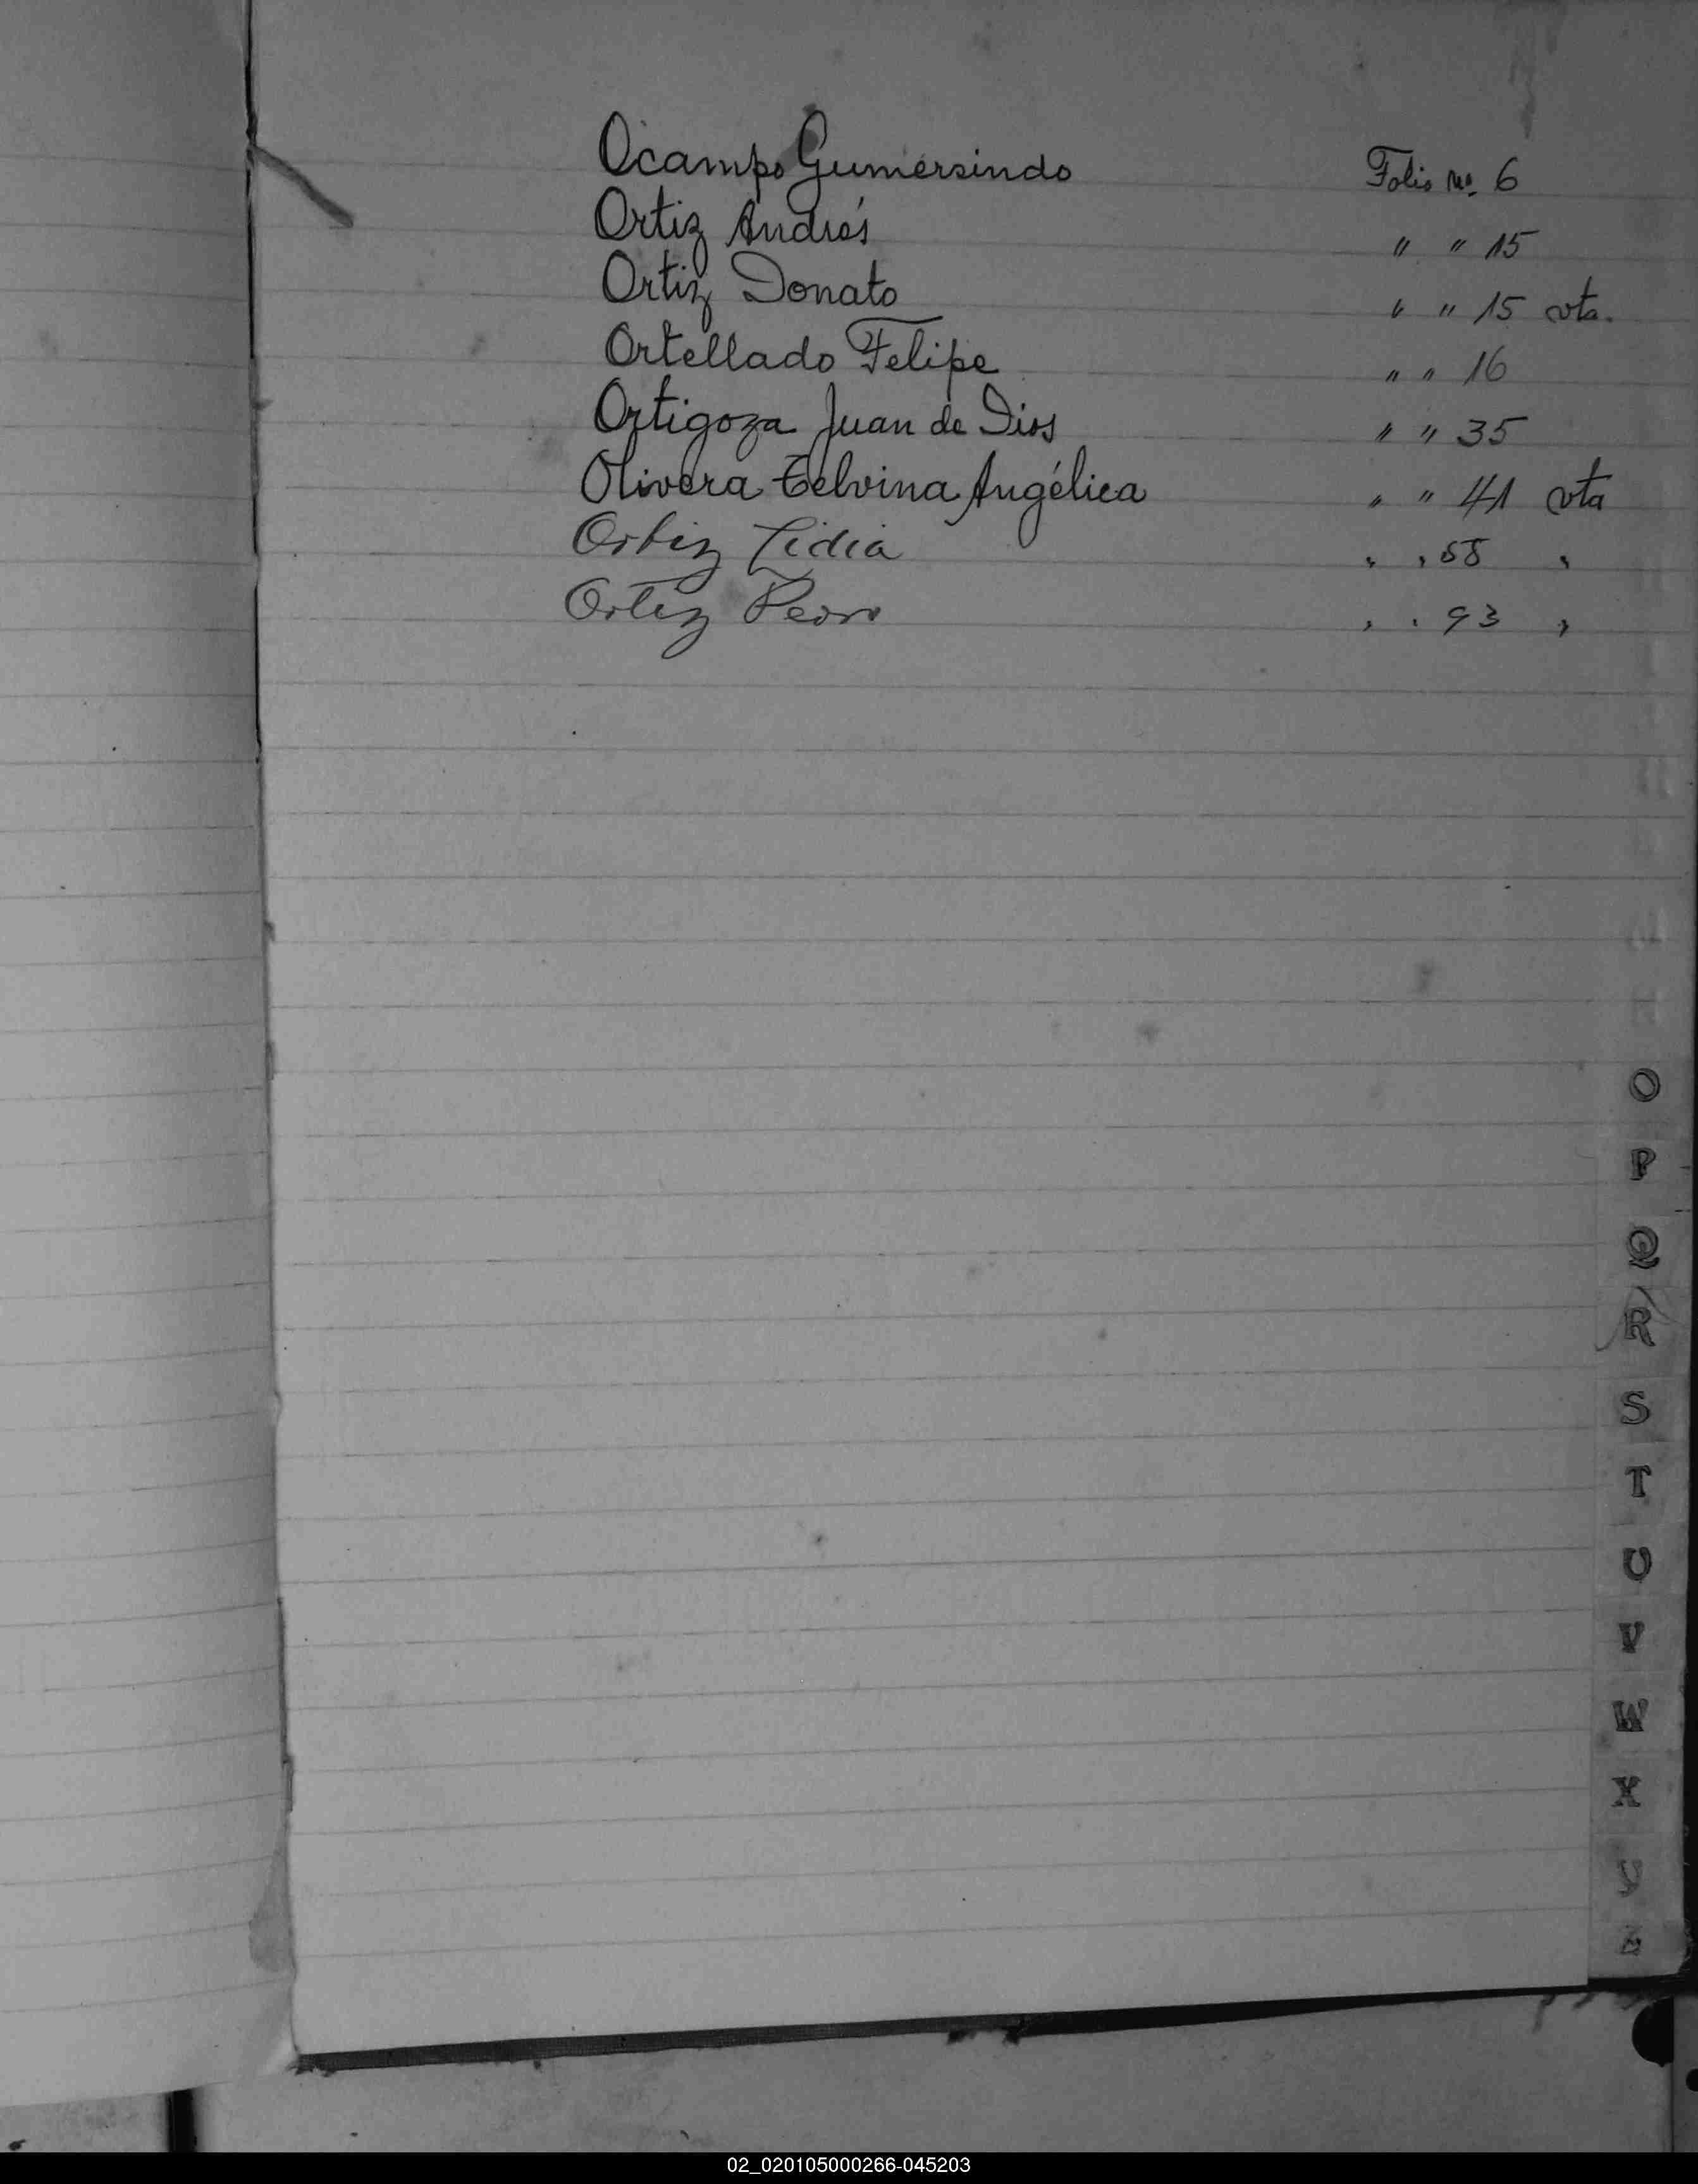 Ocampo Gumersindo Folio No. 6
Ortiz Andrés " " 15
Ortiz Donato " " 15 vta.
Ortellado Felipe " " 16
Ortigoza Juan de Dios " " 35
Olivera Telvina Angélica " " 41 vta
Ortiz Lidia " "
Ortiz Pedro " " 93 "
O
P
Q
R
S
T
U
V
W
X
Y
Z
02_020105000266-045203